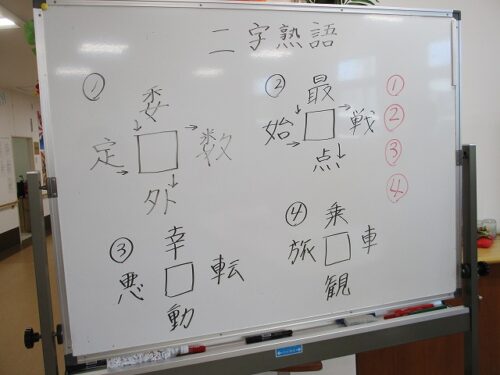 二字熟語
①
委
定 数
外
②
最
始 戦
点
③
幸
悪 転
動
④
乗
旅 車
観
①
②
③
④